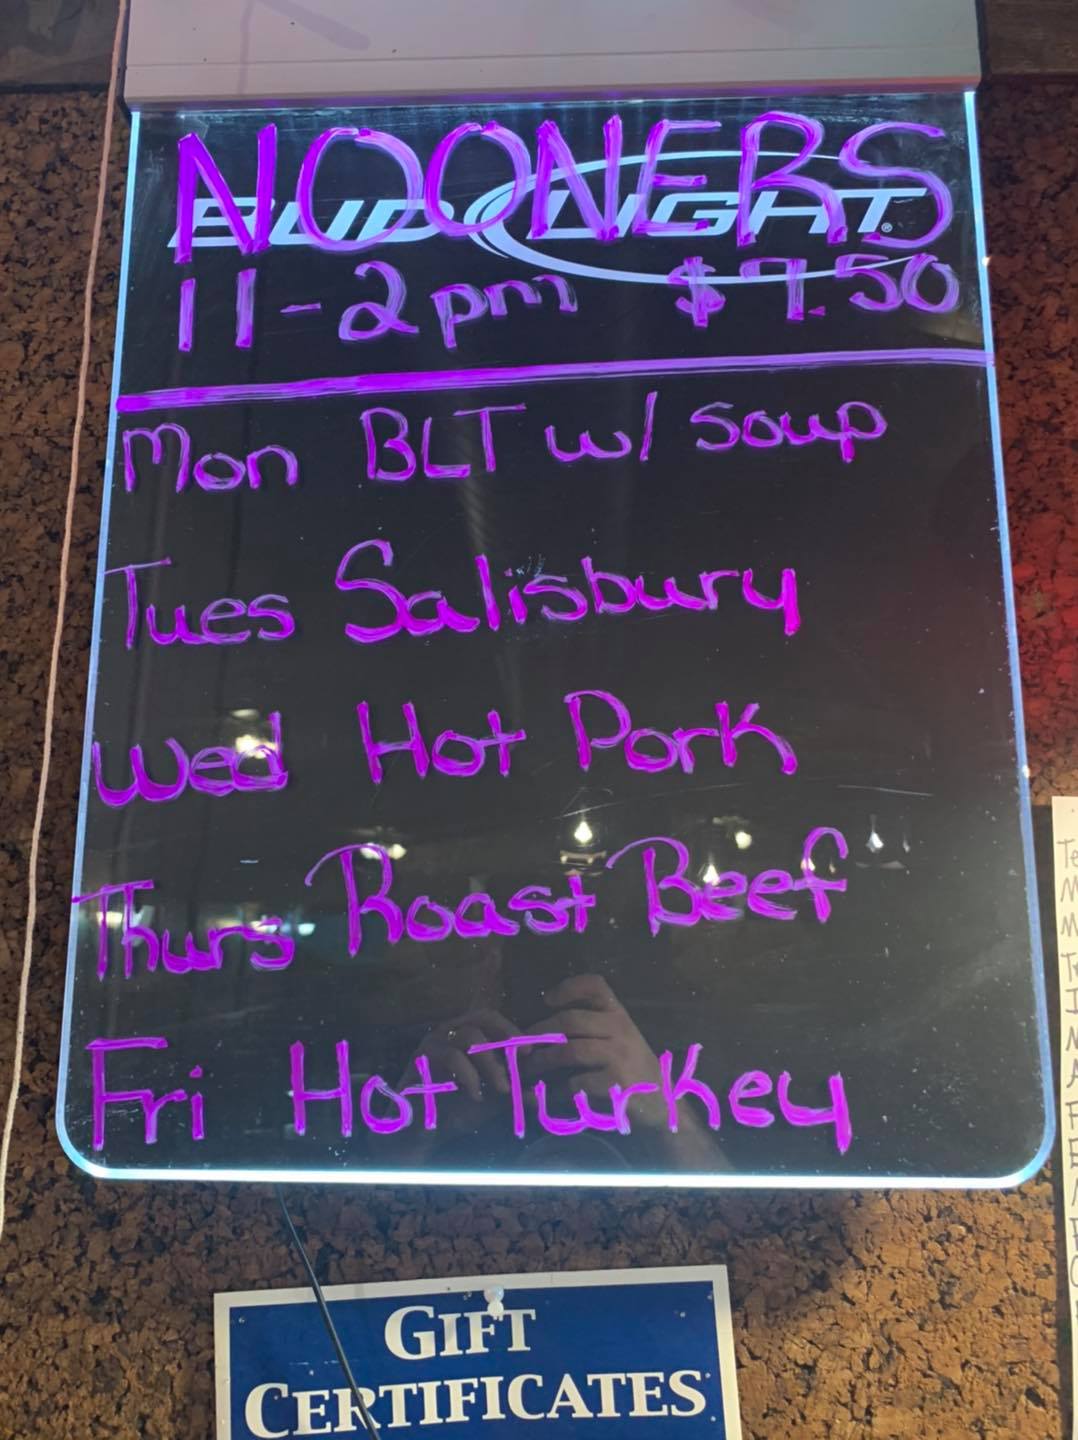 NOONERS
BUD LIGHT
11-2pm $9.50
Mon BLT w/ soup
Tues Salisbury
Wed Hot Pork
Thurs Roast Beef
Fri Hot Turkey
GIFT
CERTIFICATES